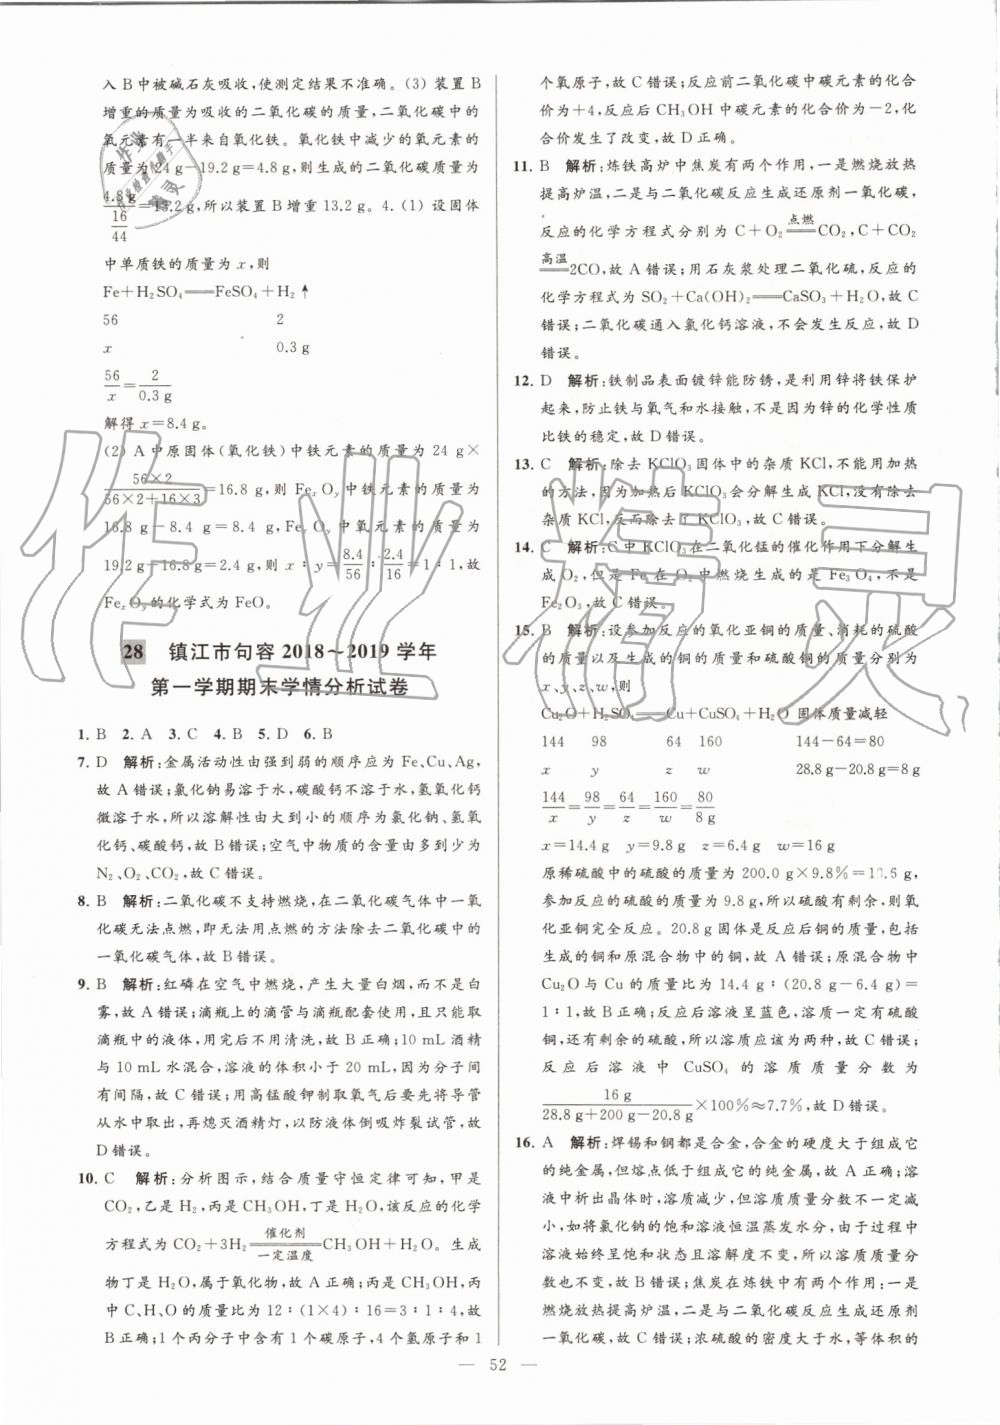 入B中被碱石灰吸收,使测定结果不准确。(3)装置B
增重的质量为吸收的二氧化碳的质量,二氧化碳中的
氧元素有一半来自氧化铁。氧化铁中减少的氧元素的
质量为24 g-19.2 g=4.8 g,则生成的二氧化碳质量为
4.8 g
16
44
=13.2 g,所以装置B增重13.2 g。4.(1)设固体
中单质铁的质量为x,则
Fe+H₂SO₄══FeSO₄+H₂↑
56 2
x 0.3 g
56/x=2/0.3 g
解得x=8.4 g。
(2)A中原固体(氧化铁)中铁元素的质量为24 g×
56×2/(56×2+16×3)=16.8 g,则FeₓOᵧ中铁元素的质量为
16.8 g-8.4 g=8.4 g,FeₓOᵧ中氧元素的质量为
19.2 g-16.8 g=2.4 g,则x∶y=8.4/56∶2.4/16=1∶1,故
FeₓOᵧ的化学式为FeO。
28 镇江市句容2018~2019学年
第一学期期末学情分析试卷
1. B 2. A 3. C 4. B 5. D 6. B
7. D 解析:金属活动性由强到弱的顺序应为Fe、Cu、Ag,
故A错误;氯化钠易溶于水,碳酸钙不溶于水,氢氧化钙
微溶于水,所以溶解性由大到小的顺序为氯化钠、氢氧
化钙、碳酸钙,故B错误;空气中物质的含量由多到少为
N₂、O₂、CO₂,故C错误。
8. B 解析:二氧化碳不支持燃烧,在二氧化碳气体中一氧
化碳无法点燃,即无法用点燃的方法除去二氧化碳中的
一氧化碳气体,故B错误。
9. B 解析:红磷在空气中燃烧,产生大量白烟,而不是白
雾,故A错误;滴瓶上的滴管与滴瓶配套使用,且只能取
滴瓶中的液体,用完后不用洗,故B正确;10 mL酒精
与10 mL水混合,溶液的体积小于20 mL,因为分子间
有间隔,故C错误;用高锰酸钾制取氧气后要将导管
从水中取出,再熄灭酒精灯,以防液体倒吸炸裂试管,故
D错误。
10. C 解析:分析图示,结合质量守恒定律可知,甲是
CO₂,乙是H₂,丙是CH₃OH,丁是H₂O,该反应的化学
方程式为CO₂+3H₂══(催化剂 一定温度)CH₃OH+H₂O。生成
物丁是H₂O,属于氧化物,故A正确;丙是CH₃OH,丙
中C、H、O的质量比为12∶(1×4)∶16=3∶1∶4,故
B正确;1个丙分子中含有1个碳原子,4个氢原子和1
个氧原子,故C错误;反应前二氧化碳中碳元素的化合
价为+4,反应后CH₃OH中碳元素的化合价为-2,化
合价发生了改变,故D正确。
11. B 解析:炼铁高炉中焦炭有两个作用,一是燃烧放热
提高炉温,二是与二氧化碳反应生成还原剂一氧化碳,
反应的化学方程式分别为C+O₂══(点燃)CO₂,C+CO₂
══(高温)2CO,故A错误;用石灰浆处理二氧化硫,反应的
化学方程式为SO₂+Ca(OH)₂══CaSO₃+H₂O,故C
错误;二氧化碳通入氯化钙溶液,不会发生反应,故D
错误。
12. D 解析:铁制品表面镀锌能防锈,是利用锌将铁保护
起来,防止铁与氧气和水接触,不是因为锌的化学性质
比铁的稳定,故D错误。
13. C 解析:除去KClO₃固体中的杂质KCl,不能用加热
的方法,因为加热后KClO₃会分解生成KCl,没有除去
杂质KCl,反而除去了KClO₃,故C错误。
14. C 解析:C中KClO₃在二氧化锰的催化作用下分解生
成O₂,但是Fe在O₂中燃烧生成的是Fe₃O₄,不是
Fe₂O₃,故C错误。
15. B 解析:设参加反应的氧化亚铜的质量、消耗的硫酸
的质量以及生成的铜、硫酸铜的质量分别为
x、y、z、w,则
Cu₂O+H₂SO₄══Cu+CuSO₄+H₂O 固体质量减轻
144 98 64 160 144-64=80
x y z w 28.8 g-20.8 g=8 g
144/x=98/y=64/z=160/w=80/8 g
x=14.4 g y=9.8 g z=6.4 g w=16 g
原稀硫酸中的硫酸的质量为200.0 g×9.8%=19.6 g,
参加反应的硫酸的质量为9.8 g,所以硫酸有剩余,则氧
化亚铜完全反应。20.8 g固体是反应后铜的质量,包括
生成的铜和原混合物中的铜,故A错误;原混合物中
Cu₂O与Cu的质量比为14.4 g∶(20.8 g-6.4 g)=
1∶1,故B正确;反应后溶液呈蓝色,溶质一定有硫酸
铜,还有剩余的硫酸,所以溶质应该为两种,故C错误;
反应后溶液中CuSO₄的溶质质量分数为
16 g/(28.8 g+200 g-20.8 g)×100%≈7.7%,故D错误。
16. A 解析:焊锡和钢都是合金,合金的硬度大于组成它
的纯金属,但熔点低于组成它的纯金属,故A正确;溶
液中析出晶体时,溶质减少,但溶质质量分数不一定减
小,如将氯化钠的饱和溶液恒温蒸发水分,由于过程中
溶液始终呈饱和状态且溶解度不变,所以溶质质量分
数也不变,故B错误;焦炭在炼铁中有两个作用,一是
燃烧放热提高炉温,二是与二氧化碳反应生成还原剂
一氧化碳,故C错误;浓硫酸的密度大于水,等体积的
— 52 —
作业精灵